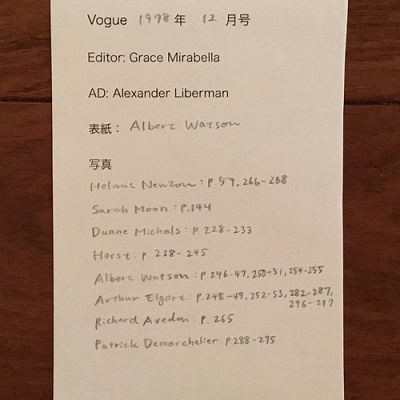 Vogue 1978 年 12 月号
Editor: Grace Mirabella
AD: Alexander Liberman
表紙： Albert Watson
写真
Helmut Newton : P.59, 266-268
Sarah Moon : P.144
Duane Michals : P. 228-233
Horst : P. 238-245
Albert Watson : P 246-47, 250-51, 254-255
Arthur Elgort : P.248-49, 252-53, 282-287,
296-297
Richard Avedon : P. 265
Patrick Demarchelier P288-295